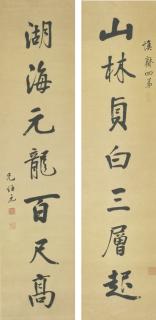 漢齋四弟
山林貞白三層起
湖海元龍百尺高
兄伯元